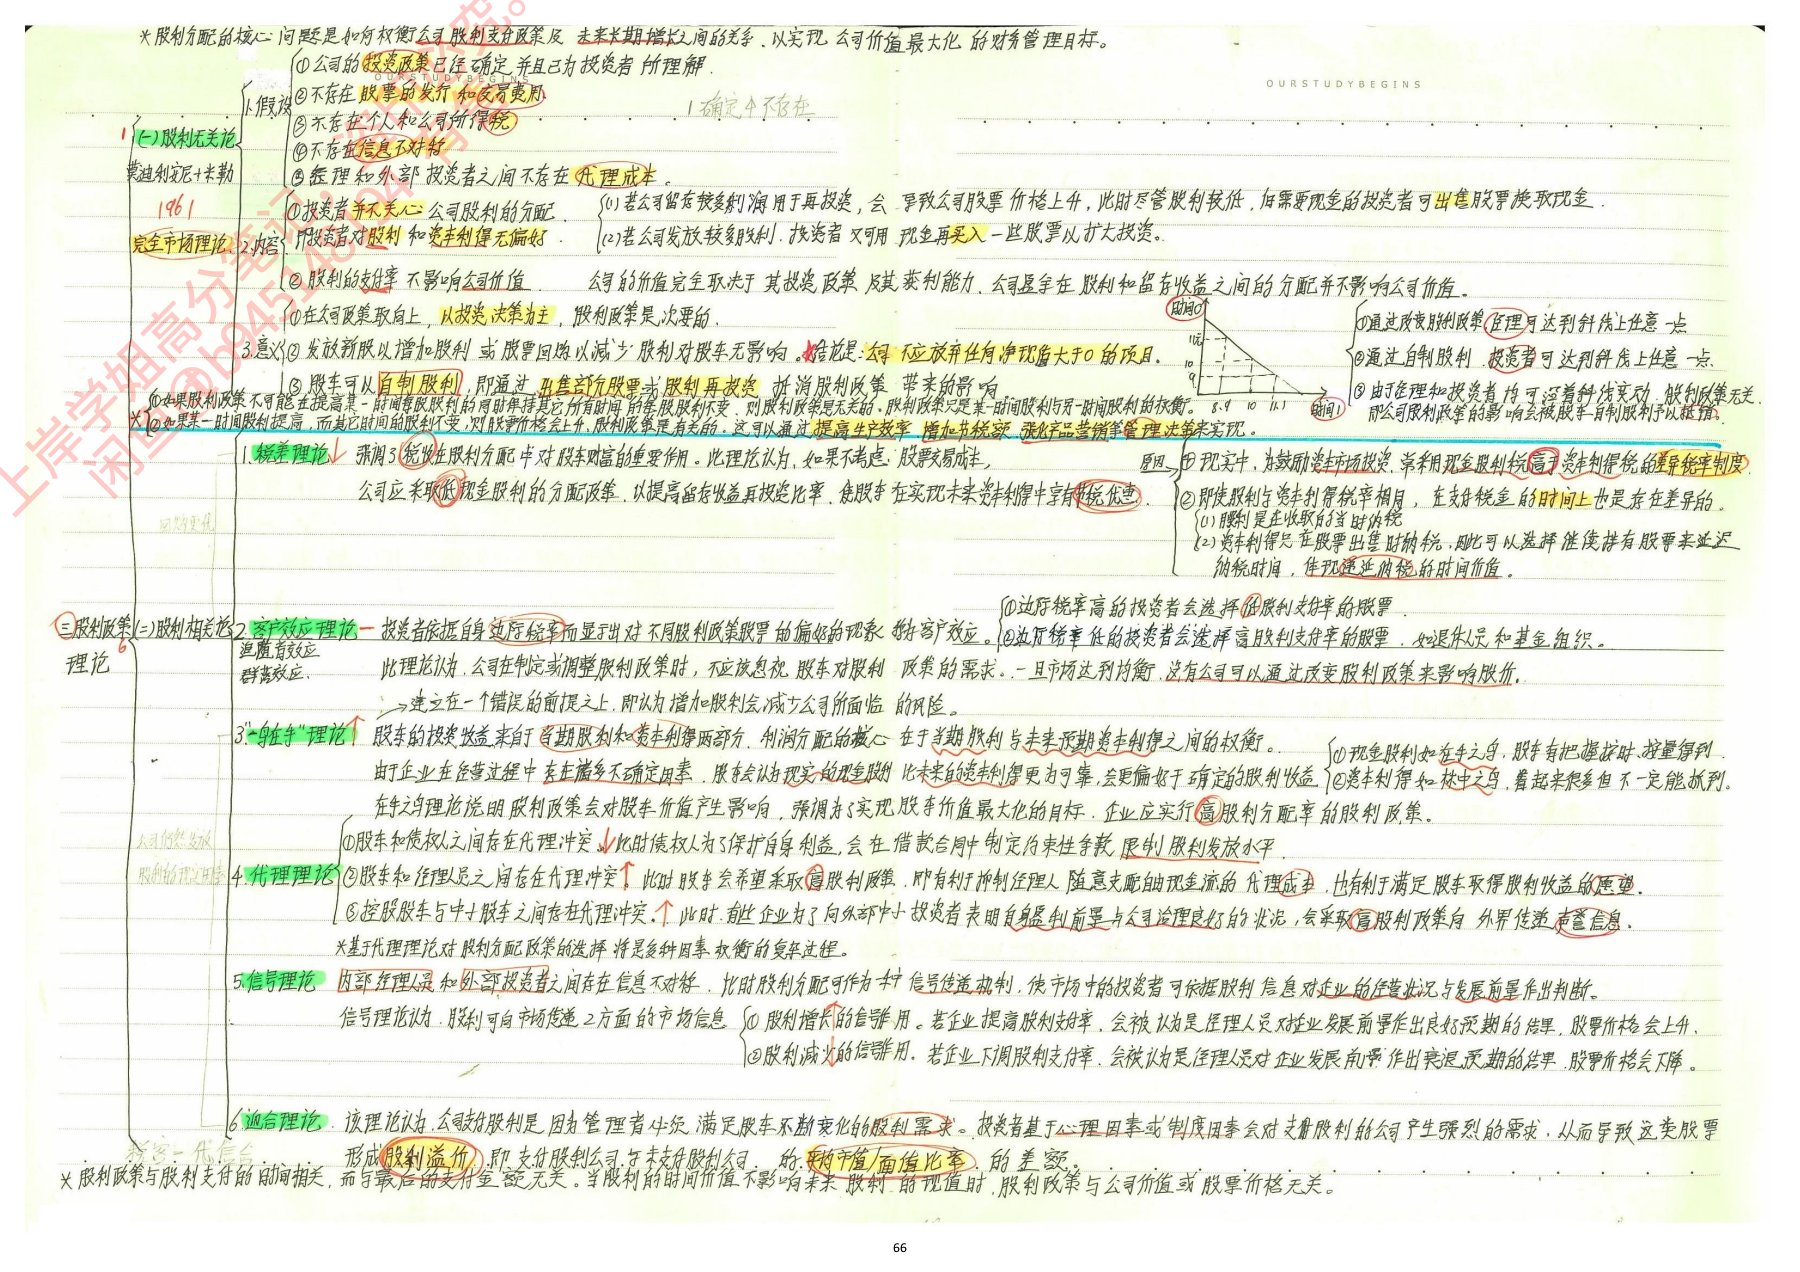 *股利分配的核心问题是如何权衡公司股利支付政策及未来长期增长之间的关系,以实现公司价值最大化的财务管理目标。
OURSTUDYBEGINS
OURSTUDYBEGINS
三股利政策理论
6
1
(一)股利无关论
莫迪利安尼+米勒
1961
完全市场理论
1.假设
①公司的投资政策已经确定并且已为投资者所理解.
②不存在股票的发行和交易费用.
③不存在个人和公司所得税
④不存在信息不对称
⑤经理和外部投资者之间不存在代理成本。
1确定4不存在
2.内容
①投资者并不关心公司股利的分配.
即投资者对股利和资本利得无偏好.
(1)若公司留存较多利润用于再投资,会导致公司股票价格上升,此时尽管股利较低,但需要现金的投资者可出售股票换取现金.
(2)若公司发放较多股利,投资者又可用现金再买入一些股票以扩大投资。
②股利的支付率不影响公司价值
公司的价值完全取决于其投资政策及其获利能力、公司盈余在股利和留存收益之间的分配并不影响公司价值。
3.意义
①在公司政策取向上,以投资决策为主,股利政策是次要的.
②发放新股以增加股利或股票回购以减少股利对股东无影响。结论是:公司不应放弃任何净现值大于0的项目.
③股东可以自制股利,即通过出售部分股票或股利再投资抵消股利政策带来的影响
时间0
11
10
9
8.9 10 11.1
时间1
①通过改变股利政策,经理可达到斜线上任意一点
②通过自制股利.投资者可达到斜线上任意一点.
③由于经理和投资者均可沿着斜线变动,股利政策无关.
即公司股利政策的影响会被股东自制股利予以抵销.
*①如果股利政策不可能在提高某一时间每股股利的同时保持其它所有时间的每股股利不变,则股利政策是无关的。股利政策只是某一时间股利与另一时间股利的权衡。
②如果某一时间股利提高,而其它时间的股利不变,则股票价格会上升,股利政策是有关的.这可以通过提高生产效率 增加节税额 强化产品营销等管理决策来实现。
(二)股利相关论
1.税差理论↓
强调了税收在股利分配中对股东财富的重要作用。此理论认为,如果不考虑股票交易成本,
公司应采取低现金股利的分配政策,以提高留存收益再投资比率,使股东在实现未来资本利得中享有节税优惠.
原因
①现实中,为鼓励资本市场投资,常采用现金股利税高于资本利得税的差异税率制度.
②即使股利与资本利得税率相同,在支付税金的时间上也是存在差异的。
(1)股利是在收取的当时纳税
(2)资本利得只在股票出售时纳税,因此可以选择继续持有股票来延迟
纳税时间,体现递延纳税的时间价值。
2.客户效应理论
追随者效应
群落效应.
投资者依据自身边际税率而显示出对不同股利政策股票的偏好的现象称为客户效应。
①边际税率高的投资者会选择低股利支付率的股票.
②边际税率低的投资者会选择高股利支付率的股票,如退休人员和基金组织。
此理论认为,公司在制定或调整股利政策时,不应该忽视股东对股利政策的需求。一旦市场达到均衡,没有公司可以通过改变股利政策来影响股价。
→建立在一个错误的前提之上,即认为增加股利会减少公司所面临的风险。
3."一鸟在手"理论↑
股东的投资收益来自于当期股利和资本利得两部分.利润分配的核心在于当期股利与未来预期资本利得之间的权衡。
由于企业在经营过程中存在诸多不确定因素,股东会认为现实的现金股利比未来的资本利得更为可靠,会更偏好于确定的股利收益
①现金股利如在手之鸟,股东有把握按时、按量得到.
②资本利得如林中之鸟,看起来很多但不一定能抓到。
在手之鸟理论说明股利政策会对股东价值产生影响,强调为了实现股东价值最大化的目标.企业应实行高股利分配率的股利政策。
4.代理理论
①股东和债权人之间存在代理冲突↓此时债权人为了保护自身利益,会在借款合同中制定约束性条款,限制股利发放水平.
②股东和经理人员之间存在代理冲突↑此时股东会希望采取高股利政策,即有利于抑制经理人随意支配自由现金流的代理成本,也有利于满足股东取得股利收益的愿望。
③控股股东与中小股东之间存在代理冲突。↑此时有些企业为了向外部中小投资者表明自身盈利前景与公司治理良好的状况,会采取高股利政策向外界传递声誉信息.
*基于代理理论对股利分配政策的选择将是多种因素权衡的复杂过程。
5.信号理论
内部经理人员和外部投资者之间存在信息不对称.此时股利分配可作为一种信号传递机制,使市场中的投资者可依据股利信息对企业的经营状况与发展前景作出判断。
信号理论认为.股利可向市场传递2方面的市场信息
①股利增长的信号作用。若企业提高股利支付率,会被认为是经理人员对企业发展前景作出良好预期的结果,股票价格会上升.
②股利减少的信号作用。若企业下调股利支付率,会被认为是经理人员对企业发展前景作出衰退预期的结果,股票价格会下降。
6.迎合理论
该理论认为,公司支付股利是因为管理者必须满足股东不断变化的股利需求。投资者基于心理因素或制度因素会对支付股利的公司产生强烈的需求,从而导致这类股票
形成股利溢价,即支付股利公司与未支付股利公司的平均市值/面值比率的差额。
*股利政策与股利支付的时间相关,而与最后的支付金额无关。当股利的时间价值不影响未来股利的现值时,股利政策与公司价值或股票价格无关。
上岸学姐高分笔记
闲鱼@b94514
66